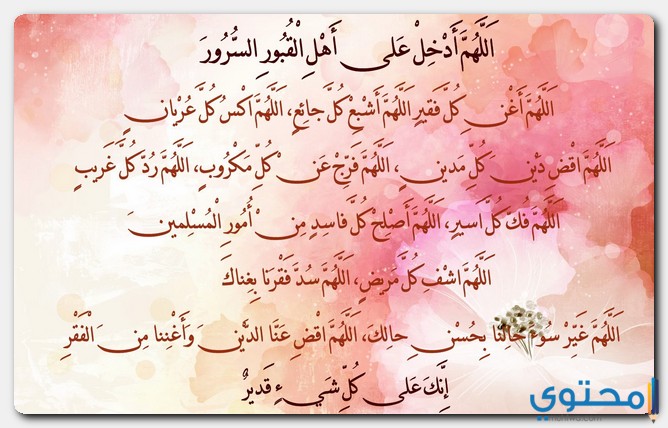 اَللَّهُمَّ أَدْخِلْ عَلى أَهْلِ الْقُبُورِ السُّرُورَ
اَللَّهُمَّ أَغْنِ كُلَّ فَقيرٍ اَللَّهُمَّ أَشْبِعْ كُلَّ جائِعٍ، اَللَّهُمَّ اكْسُ كُلَّ عُرْيانٍ
اَللَّهُمَّ اقْضِ دَيْنَ كُلِّ مَدينٍ، اَللَّهُمَّ فَرِّجْ عَنْ كُلِّ مَكْرُوبٍ، اَللَّهُمَّ رُدَّ كُلَّ غَريبٍ
اَللَّهُمَّ فُكَ كُلَّ اَسيرٍ، اَللَّهُمَّ أَصْلِحْ كُلَّ فَاسِدٍ مِنْ أُمُورِ الْمُسْلِمينَ
اَللَّهُمَّ اشْفِ كُلَّ مَريضٍ، اَللَّهُمَّ سُدَّ فَقْرَنا بِغِناكَ
اَللَّهُمَّ غَيِّرْ سُوءَ حَالِنَا بِحُسْنِ حالِكَ، اَللَّهُمَّ اقْضِ عَنَّا الدَّيْنَ وَأَغْنِنا مِنَ الْفَقْرِ
إِنَّكَ عَلى كُلِّ شَيءٍ قَديرٌ
محتوي